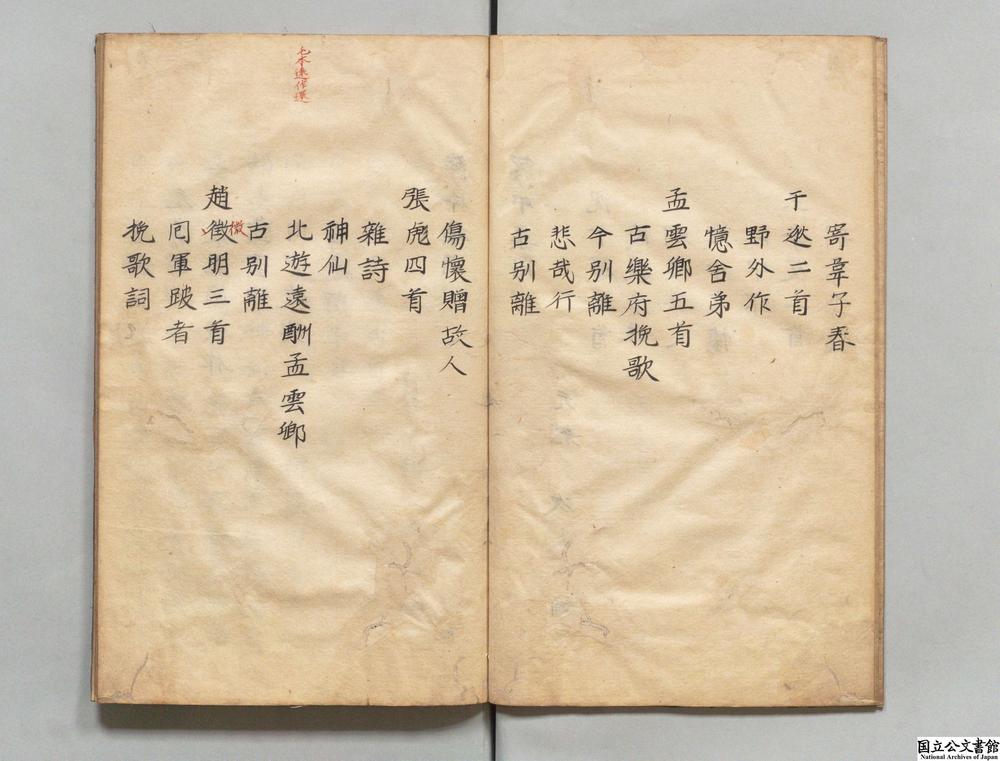 寄韋子春
于逖二首
野外作
憶舍弟
孟雲卿五首
古樂府挽歌
今别離
悲哉行
古别離
傷懷贈故人
張彪四首
雜詩
神仙
北遊遠酬孟雲卿
古别離
趙徴明三首
微
囘軍跛者
挽歌詞
毛本遠作還
国立公文書館
National Archives of Japan